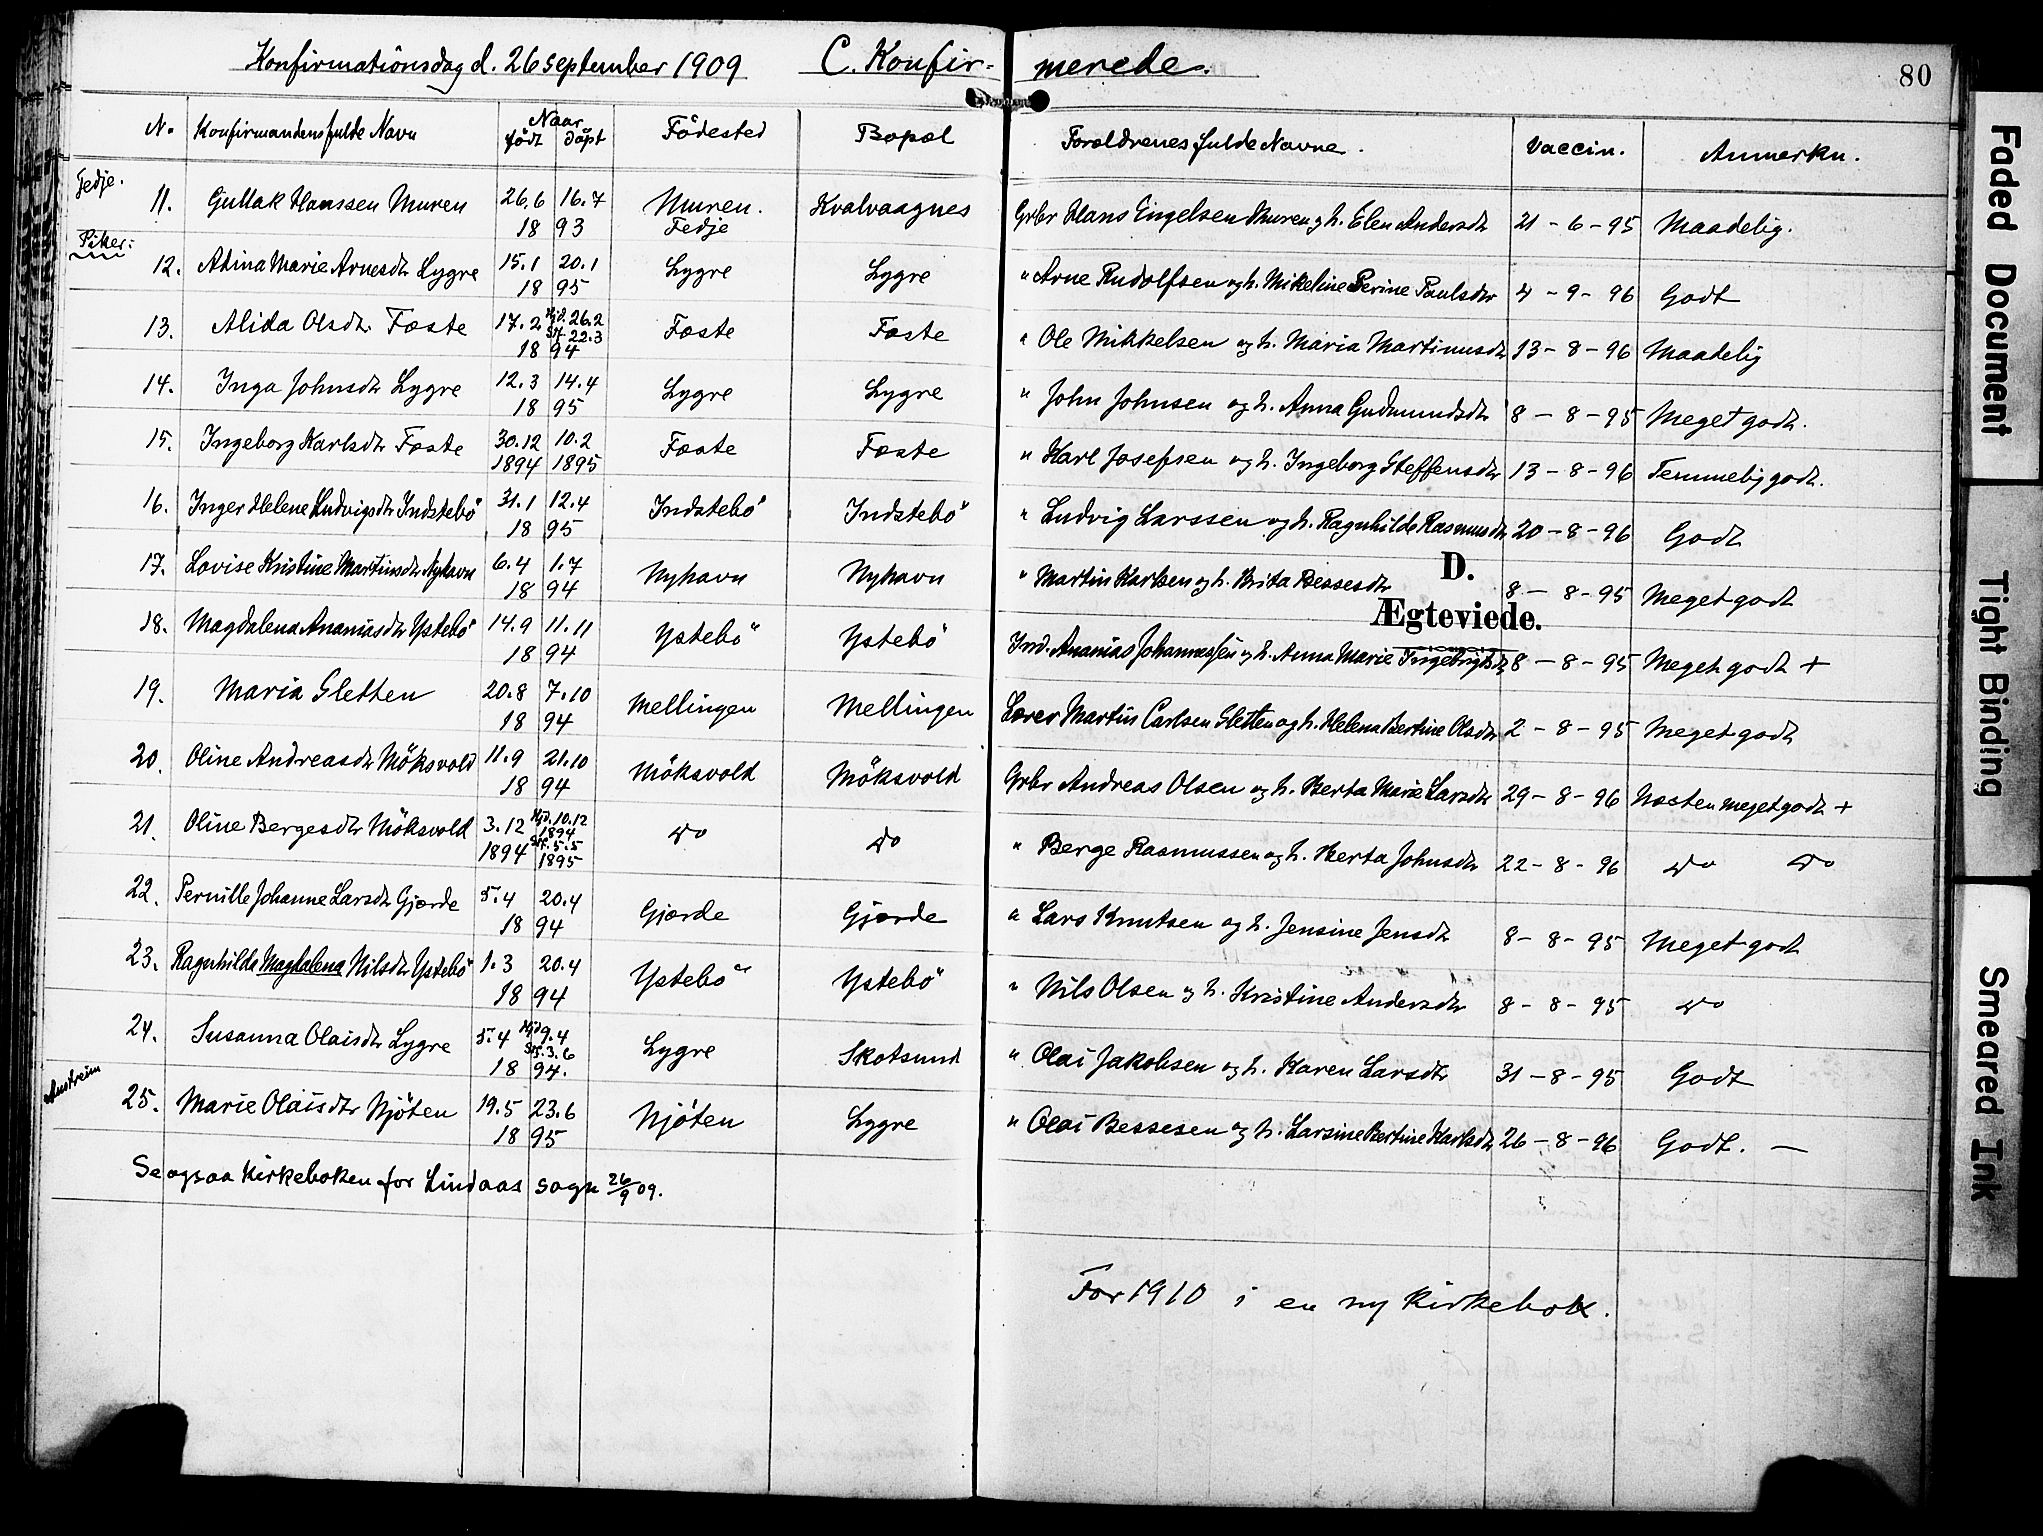 Konfirmationsdag d. 26 september 1909 C. Konfirmerede. 80
No Konfirmandens fulde Navn Naar født døpt Fødested Bopæl Forældrenes fulde Navne. Vaccin. Anmerkn.
Fedje.
11. Gullak Hanssen Muren 26.6 16.7 1893 Muren. Fedje Kvalvaagnes Grbr Hans Engelsen Muren og h. Elen Andersdtr 21-6-95 Maadelig.
Piker:
12. Alina Marie Arnesdtr Lygre 15.1 20.1 1895 Lygre Lygre " Arne Rudolfsen og h. Mikeline Perine Paulsdtr 4-9-96 Godt
13. Alida Olsdtr. Fæste 17.2 Hjd. 26.2 Stf. 22.3 1894 Fæste Fæste " Ole Mikkelsen og h. Maria Martinusdtr 13-8-96 Maadelig
14. Inga Johnsdtr Lygre 12.3 14.4 1895 Lygre Lygre " John Johnsen og h. Anna Gudmundsdtr 8-8-95 Meget godt.
15. Ingeborg Karlsdtr Fæste 30.12 1894 10.2 1895 Fæste Fæste " Karl Josefsen og h. Ingeborg Steffensdtr 13-8-96 Temmelig godt.
16. Inger Helene Ludvigsdtr Indstebö 31.1 12.4 1895 Indstebö Indstebö " Ludvig Larssen og h. Ragnhilde Rasmusdtr 20-8-96 Godt
17. Lovise Kristine Martinsdtr Nyhavn 6.4 1.7 1894 Nyhavn Nyhavn " Martin Karlsen og h. Brita Bessesdtr 8-8-95 Meget godt
D.
Ægteviede.
18. Magdalena Ananiasdtr Ystebö 14.9 11.11 1894 Ystebö Ystebö Ind. Ananias Johannessen og h. Anna Marie Ingebrigtsdtr 8-8-95 Meget godt +
19. Maria Sletten 20.8 7.10 1894 Mellingen Mellingen Lærer Martin Carlsen Sletten og h. Helena Bertine Olsdtr 2-8-95 Meget godt
20. Oline Andreasdtr Möksvold 11.9 21.10 1894 Möksvold Möksvold Grbr Andreas Olsen og h. Berta Marie Larsdtr 29-8-96 Næsten meget godt +
21. Oline Bergesdtr Möksvold 3.12 1894 Hjd. 10.12 1894 Stf. 5.5 1895 do do " Berge Rasmussen og h. Berta Johnsdtr 22-8-96 do do
22. Pernille Johanne Larsdtr Gjærde 5.4 20.4 1894 Gjærde Gjærde " Lars Knutsen og h. Jensine Jensdtr 8-8-95 Meget godt
23. Ragnhilda Magdalena Nilsdtr Ystebö 1.3 20.4 1894 Ystebö Ystebö " Nils Olsen og h. Kristine Andersdtr 8-8-95 do
24. Susanna Olaisdtr Lygre 5.4 Hjd 9.4 Stf. 3.6 1894. Lygre Skotsund " Olai Jakobsen og h. Karen Larsdtr 31-8-95 Godt
Austreim
25. Marie Olaisdtr Njöten 19.5 23.6 1895 Njöten Lygre " Olai Bessesen og h. Larsine Bertine Karlsdtr 26-8-96 Godt. —
Se ogsaa Kirkeboken for Lindaas sogn 26/9 09.
For 1910 i en ny kirkebok.
Faded Document
Tight Binding
Smeared Ink